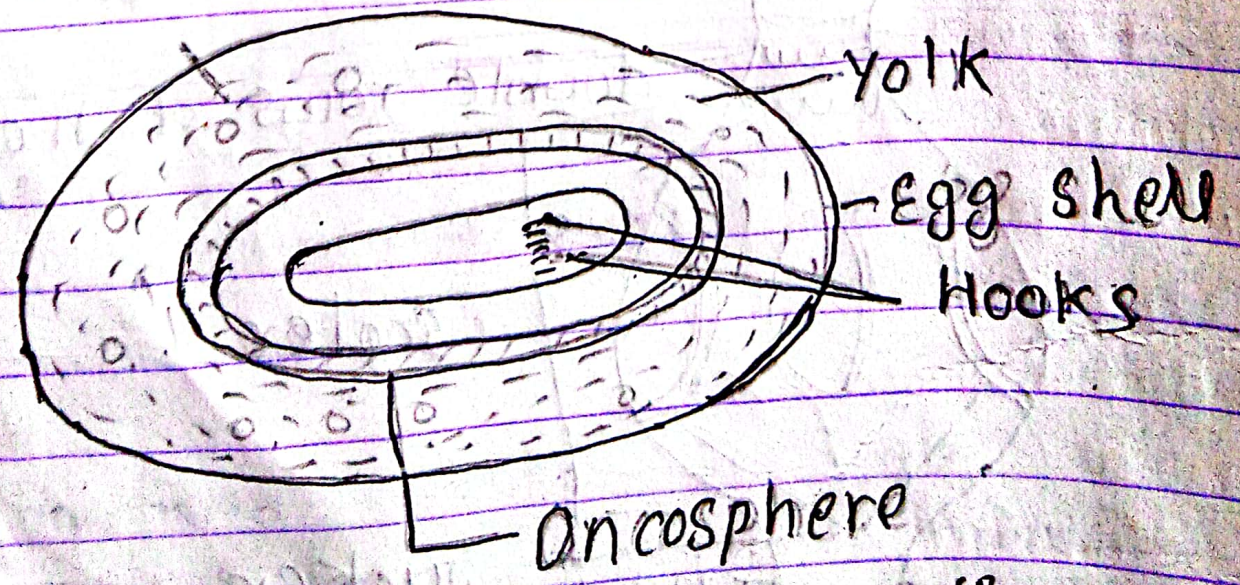 Yolk
Egg shell
Hooks
Oncosphere